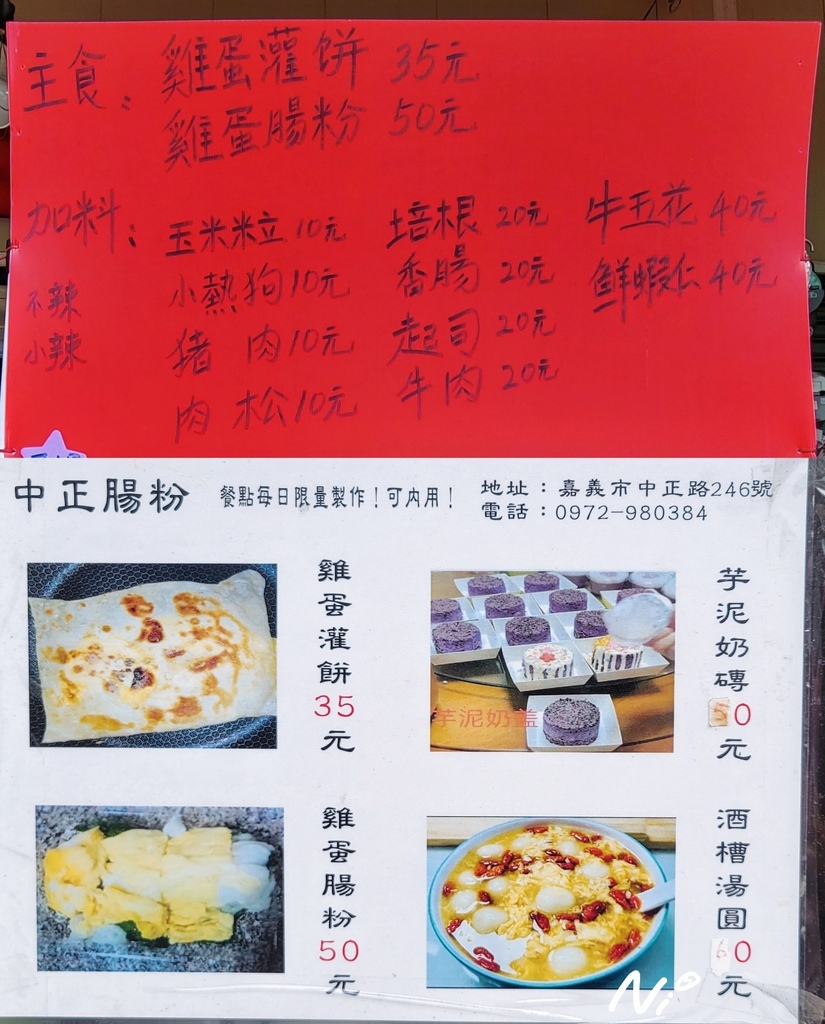 主食：雞蛋灌餅 35元
雞蛋腸粉 50元
加料：玉米米立10元 培根 20元 牛五花 40元
不辣 小熱狗10元 香腸 20元 鮮蝦仁40元
小辣 猪 肉10元 起司 20元
肉 松10元 牛肉 20元
中正腸粉 餐點每日限量製作！可內用！ 地址：嘉義市中正路246號
電話：0972-980384
雞蛋灌餅35元
芋泥奶磚 0元
芋泥奶盖
雞蛋腸粉50元
酒槽湯圓60元
Ni